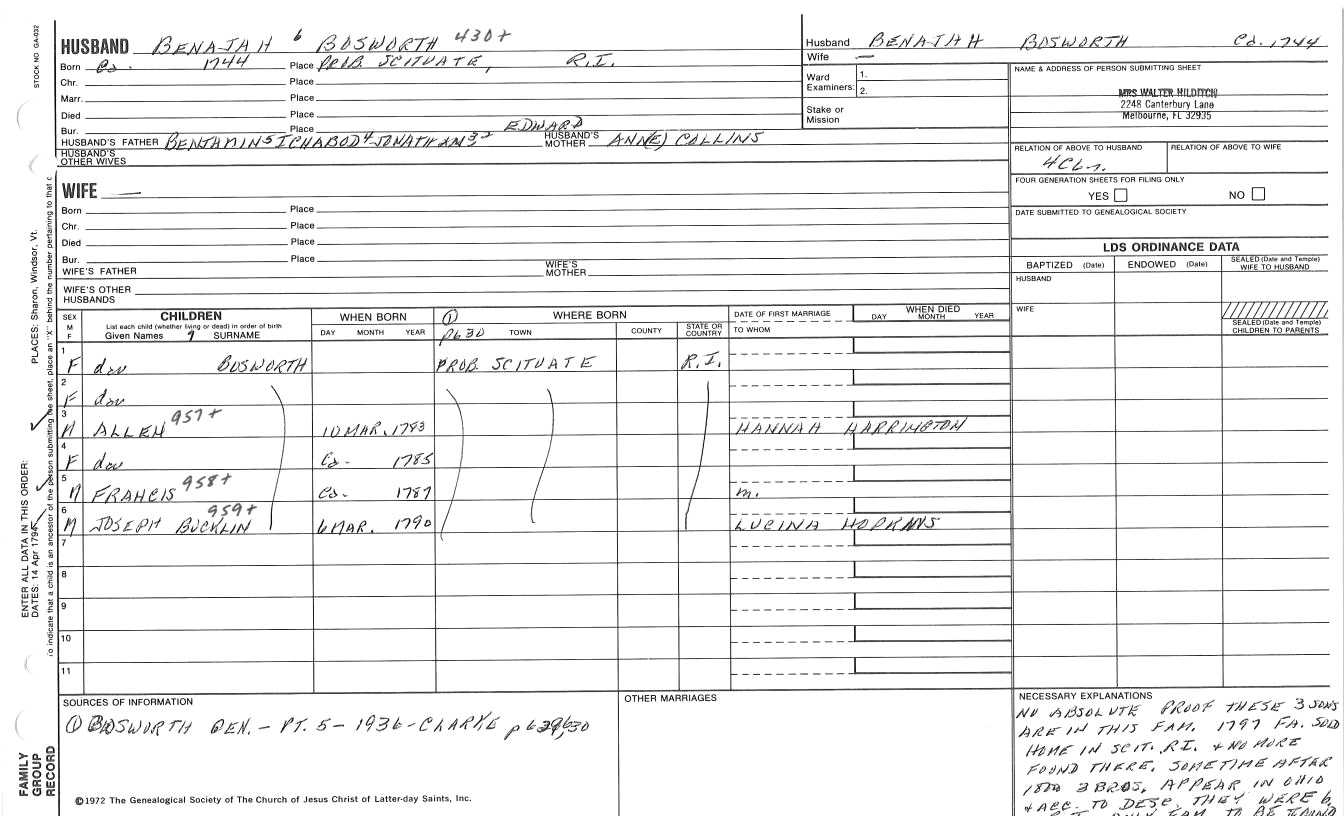 STOCK NO GA-032
HUSBAND BENAJAH 6 BOSWORTH 430+
Born Ca. 1744 Place PROB. SCITUATE, R.I.
Chr. Place
Marr. Place
Died Place
Bur. Place
EDWARD
HUSBAND'S FATHER BENJAMIN5 ICHABOD4 JONATHAN3 2 HUSBAND'S MOTHER ANN(E) COLLINS
HUSBAND'S OTHER WIVES
Husband BENAJAH BOSWORTH Ca. 1744
Wife —
Ward Examiners: 1.
2.
Stake or Mission
NAME & ADDRESS OF PERSON SUBMITTING SHEET
MRS WALTER HILDITCH
2248 Canterbury Lane
Melbourne, FL 32935
RELATION OF ABOVE TO HUSBAND RELATION OF ABOVE TO WIFE
FOUR GENERATION SHEETS FOR FILING ONLY
YES NO
DATE SUBMITTED TO GENEALOGICAL SOCIETY
WIFE —
Born Place
Chr. Place
Died Place
Bur. Place
WIFE'S FATHER WIFE'S MOTHER
WIFE'S OTHER HUSBANDS
LDS ORDINANCE DATA
BAPTIZED (Date) ENDOWED (Date) SEALED (Date and Temple) WIFE TO HUSBAND
HUSBAND
WIFE
SEALED (Date and Temple) CHILDREN TO PARENTS
SEX M F CHILDREN List each child (whether living or dead) in order of birth Given Names 7 SURNAME
WHEN BORN DAY MONTH YEAR
① p630 WHERE BORN TOWN COUNTY STATE OR COUNTRY
DATE OF FIRST MARRIAGE TO WHOM
WHEN DIED DAY MONTH YEAR
1 F dau BOSWORTH PROB. SCITUATE R.I.
2 F dau
3 M ALLEN 957+ 10 MAR. 1783 HANNAH HARRINGTON
4 F dau Ca. 1785
5 M FRANCIS 958+ Ca. 1787 m.
6 M JOSEPH BUCKLIN 959+ 6 MAR. 1790 LUCINA HOPKINS
7
8
9
10
11
PLACES: Sharon, Windsor, Vt.
ENTER ALL DATA IN THIS ORDER:
DATES: 14 Apr 1794
To indicate that a child is an ancestor of the person submitting the sheet, place an "X" behind the number pertaining to that c
FAMILY GROUP RECORD
SOURCES OF INFORMATION
① BOSWORTH GEN. - PT. 5 - 1936 - CLARKE
OTHER MARRIAGES
NECESSARY EXPLANATIONS
NO ABSOLUTE PROOF THESE 3 SONS
ARE IN THIS FAM. 1797 FA. SOLD
HOME IN SCIT. RI. + NO MORE
FOUND THERE. SOMETIME AFTER
1800 3 BROS. APPEAR IN OHIO
+ ACC. TO DESC. THEY WERE
ONLY FAM. TO BE FOUND
©1972 The Genealogical Society of The Church of Jesus Christ of Latter-day Saints, Inc.